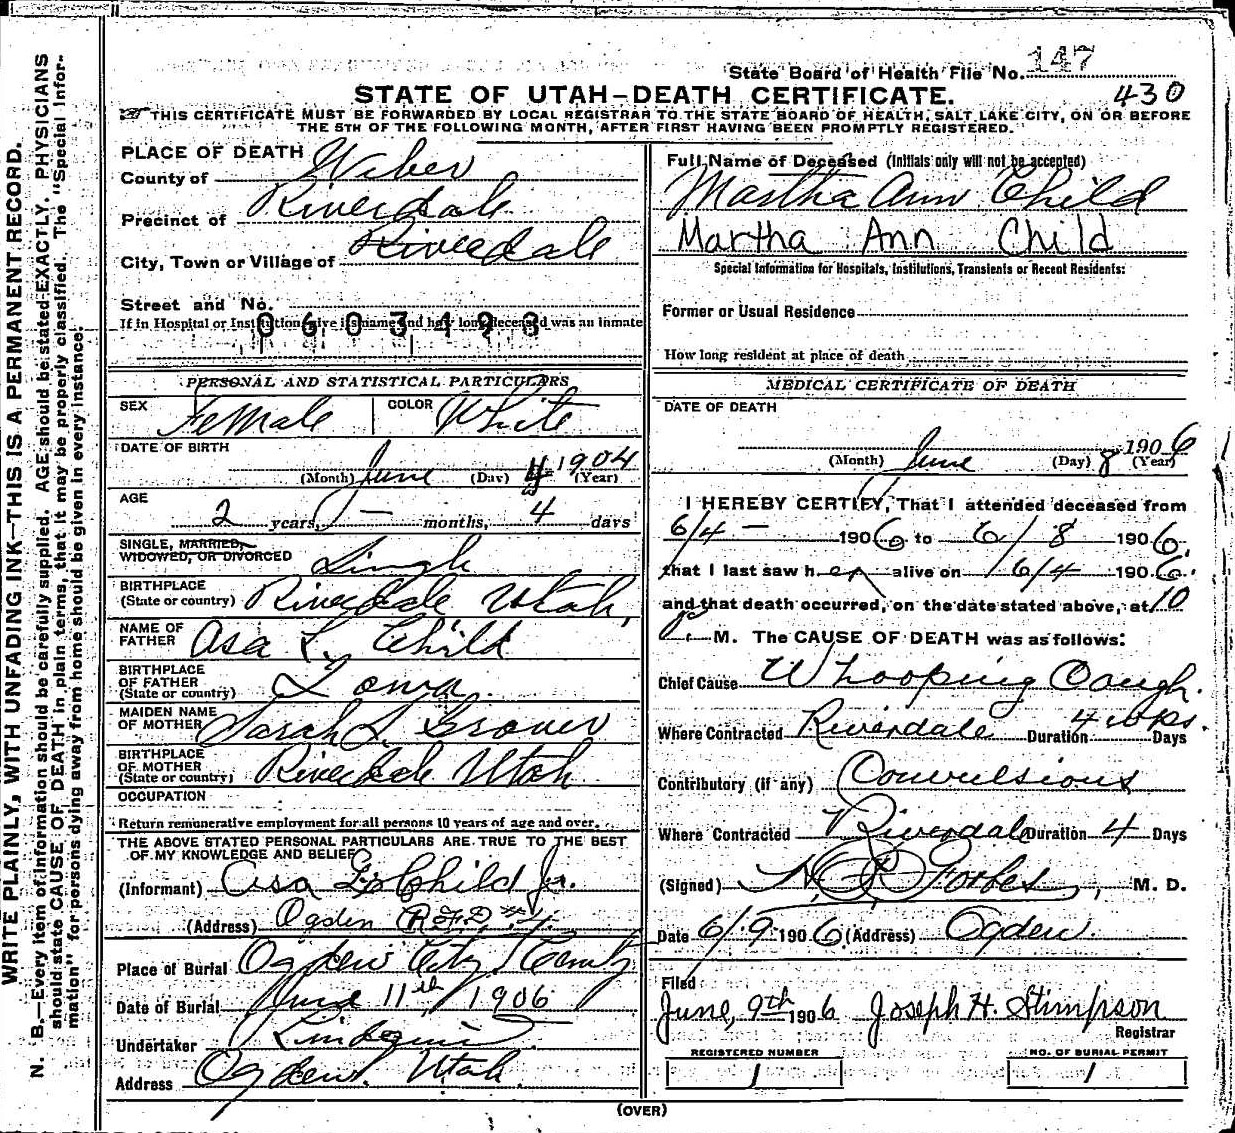 State Board of Health File No. 147
STATE OF UTAH–DEATH CERTIFICATE.
430
THIS CERTIFICATE MUST BE FORWARDED BY LOCAL REGISTRAR TO THE STATE BOARD OF HEALTH, SALT LAKE CITY, ON OR BEFORE
THE 5TH OF THE FOLLOWING MONTH, AFTER FIRST HAVING BEEN PROMPTLY REGISTERED.
WRITE PLAINLY, WITH UNFADING INK—THIS IS A PERMANENT RECORD.
N. B.—Every item of information should be carefully supplied. AGE should be stated EXACTLY. PHYSICIANS
should state CAUSE OF DEATH in plain terms, that it may be properly classified. The "Special Infor-
mation" for persons dying away from home should be given in every instance.
PLACE OF DEATH
County of Weber
Precinct of Riverdale
City, Town or Village of Riverdale
Street and No.
If in Hospital or Institution give its name and how long deceased was an inmate
0603493
PERSONAL AND STATISTICAL PARTICULARS
SEX Female COLOR White
DATE OF BIRTH
(Month) June (Day) 4 1904 (Year)
AGE
2 years, — months, 4 days
SINGLE, MARRIED,
WIDOWED, OR DIVORCED Single
BIRTHPLACE
(State or country) Riverdale Utah,
NAME OF
FATHER Asa L. Child
BIRTHPLACE
OF FATHER
(State or country) Iowa
MAIDEN NAME
OF MOTHER Sarah L. Graves
BIRTHPLACE
OF MOTHER
(State or country) Riverdale Utah
OCCUPATION
Return remunerative employment for all persons 10 years of age and over.
THE ABOVE STATED PERSONAL PARTICULARS ARE TRUE TO THE BEST
OF MY KNOWLEDGE AND BELIEF
(Informant) Asa L. Child Jr.
(Address) Ogden R.F.D. #4.
Place of Burial Ogden City Cemty
Date of Burial June 11th 1906
Undertaker Lindquist
Address Ogden. Utah.
Full Name of Deceased (Initials only will not be accepted)
Martha Ann Child
Martha Ann Child
Special Information for Hospitals, Institutions, Transients or Recent Residents:
Former or Usual Residence
How long resident at place of death
MEDICAL CERTIFICATE OF DEATH
DATE OF DEATH
(Month) June (Day) 8 1906 (Year)
I HEREBY CERTIFY, That I attended deceased from
6/4 — 1906 to 6/8 1906,
that I last saw her alive on 6/4 1906.
and that death occurred, on the date stated above, at 10
P. M. The CAUSE OF DEATH was as follows:
Chief Cause Whooping Cough.
Where Contracted Riverdale Duration 4 wks. Days
Contributory (if any) Convulsions
Where Contracted Riverdale Duration 4 Days
(Signed) Forbes, M. D.
Date 6/9 1906 (Address) Ogden.
Filed
June, 9th 1906 Joseph H. Stimpson
Registrar
REGISTERED NUMBER
1
NO. OF BURIAL PERMIT
1
(OVER)